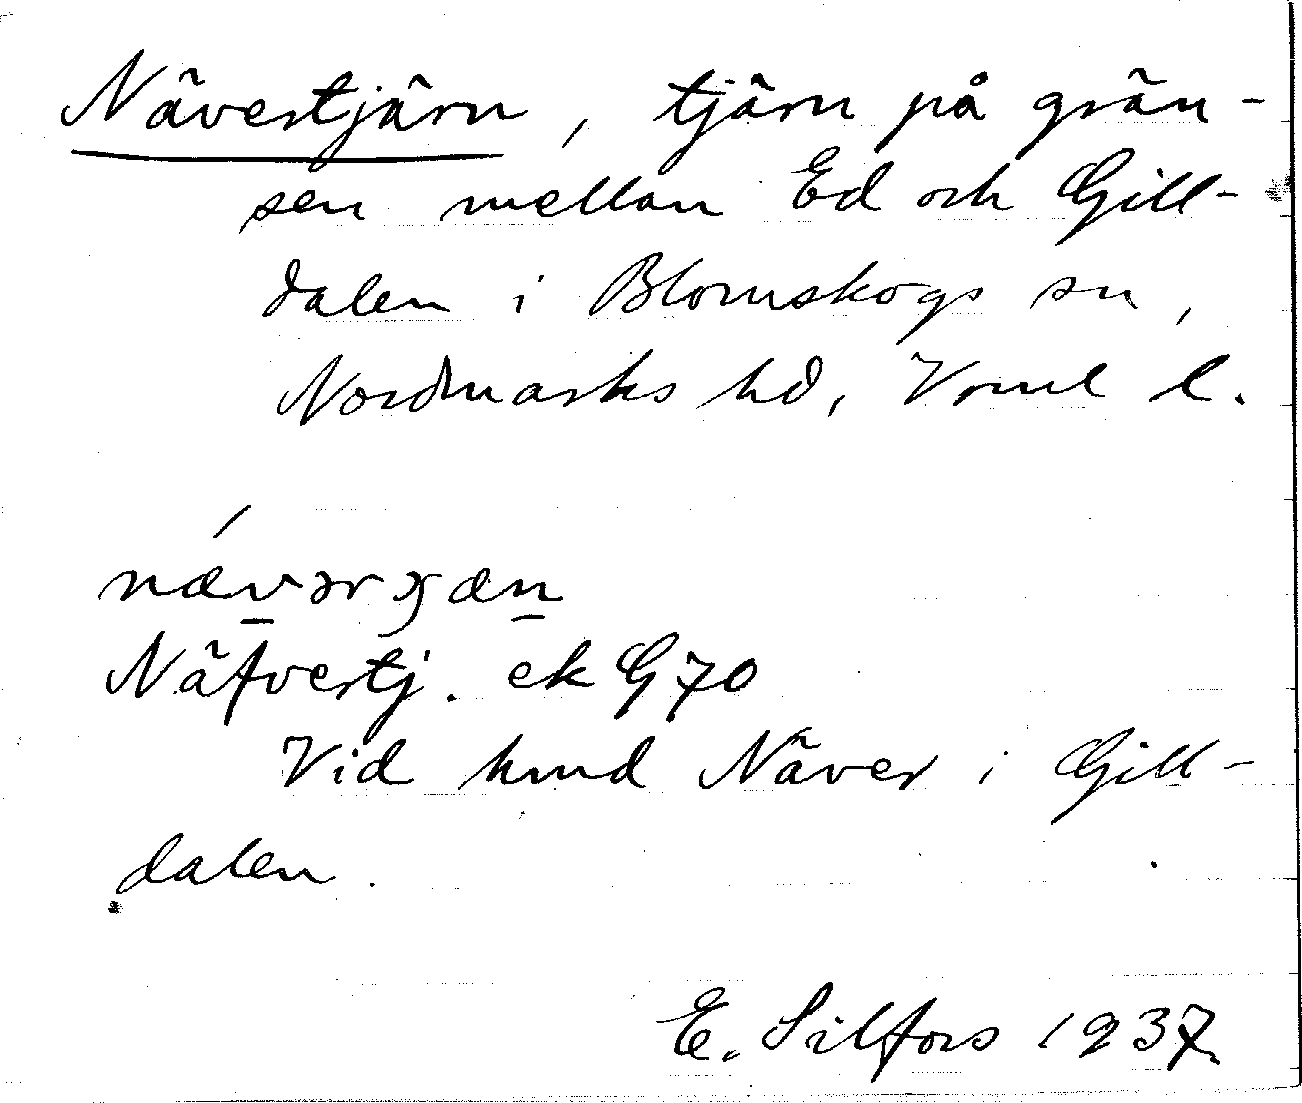 Nävertjärn, tjärn på grän-
sen mellan Ed och Gill-
dalen i Blomskogs sn,
Nordmarks hd, Vrml l.
Näfvertj. ek G70
Vid hmd Näver i Gill-
dalen.
E. Silfors 1937.